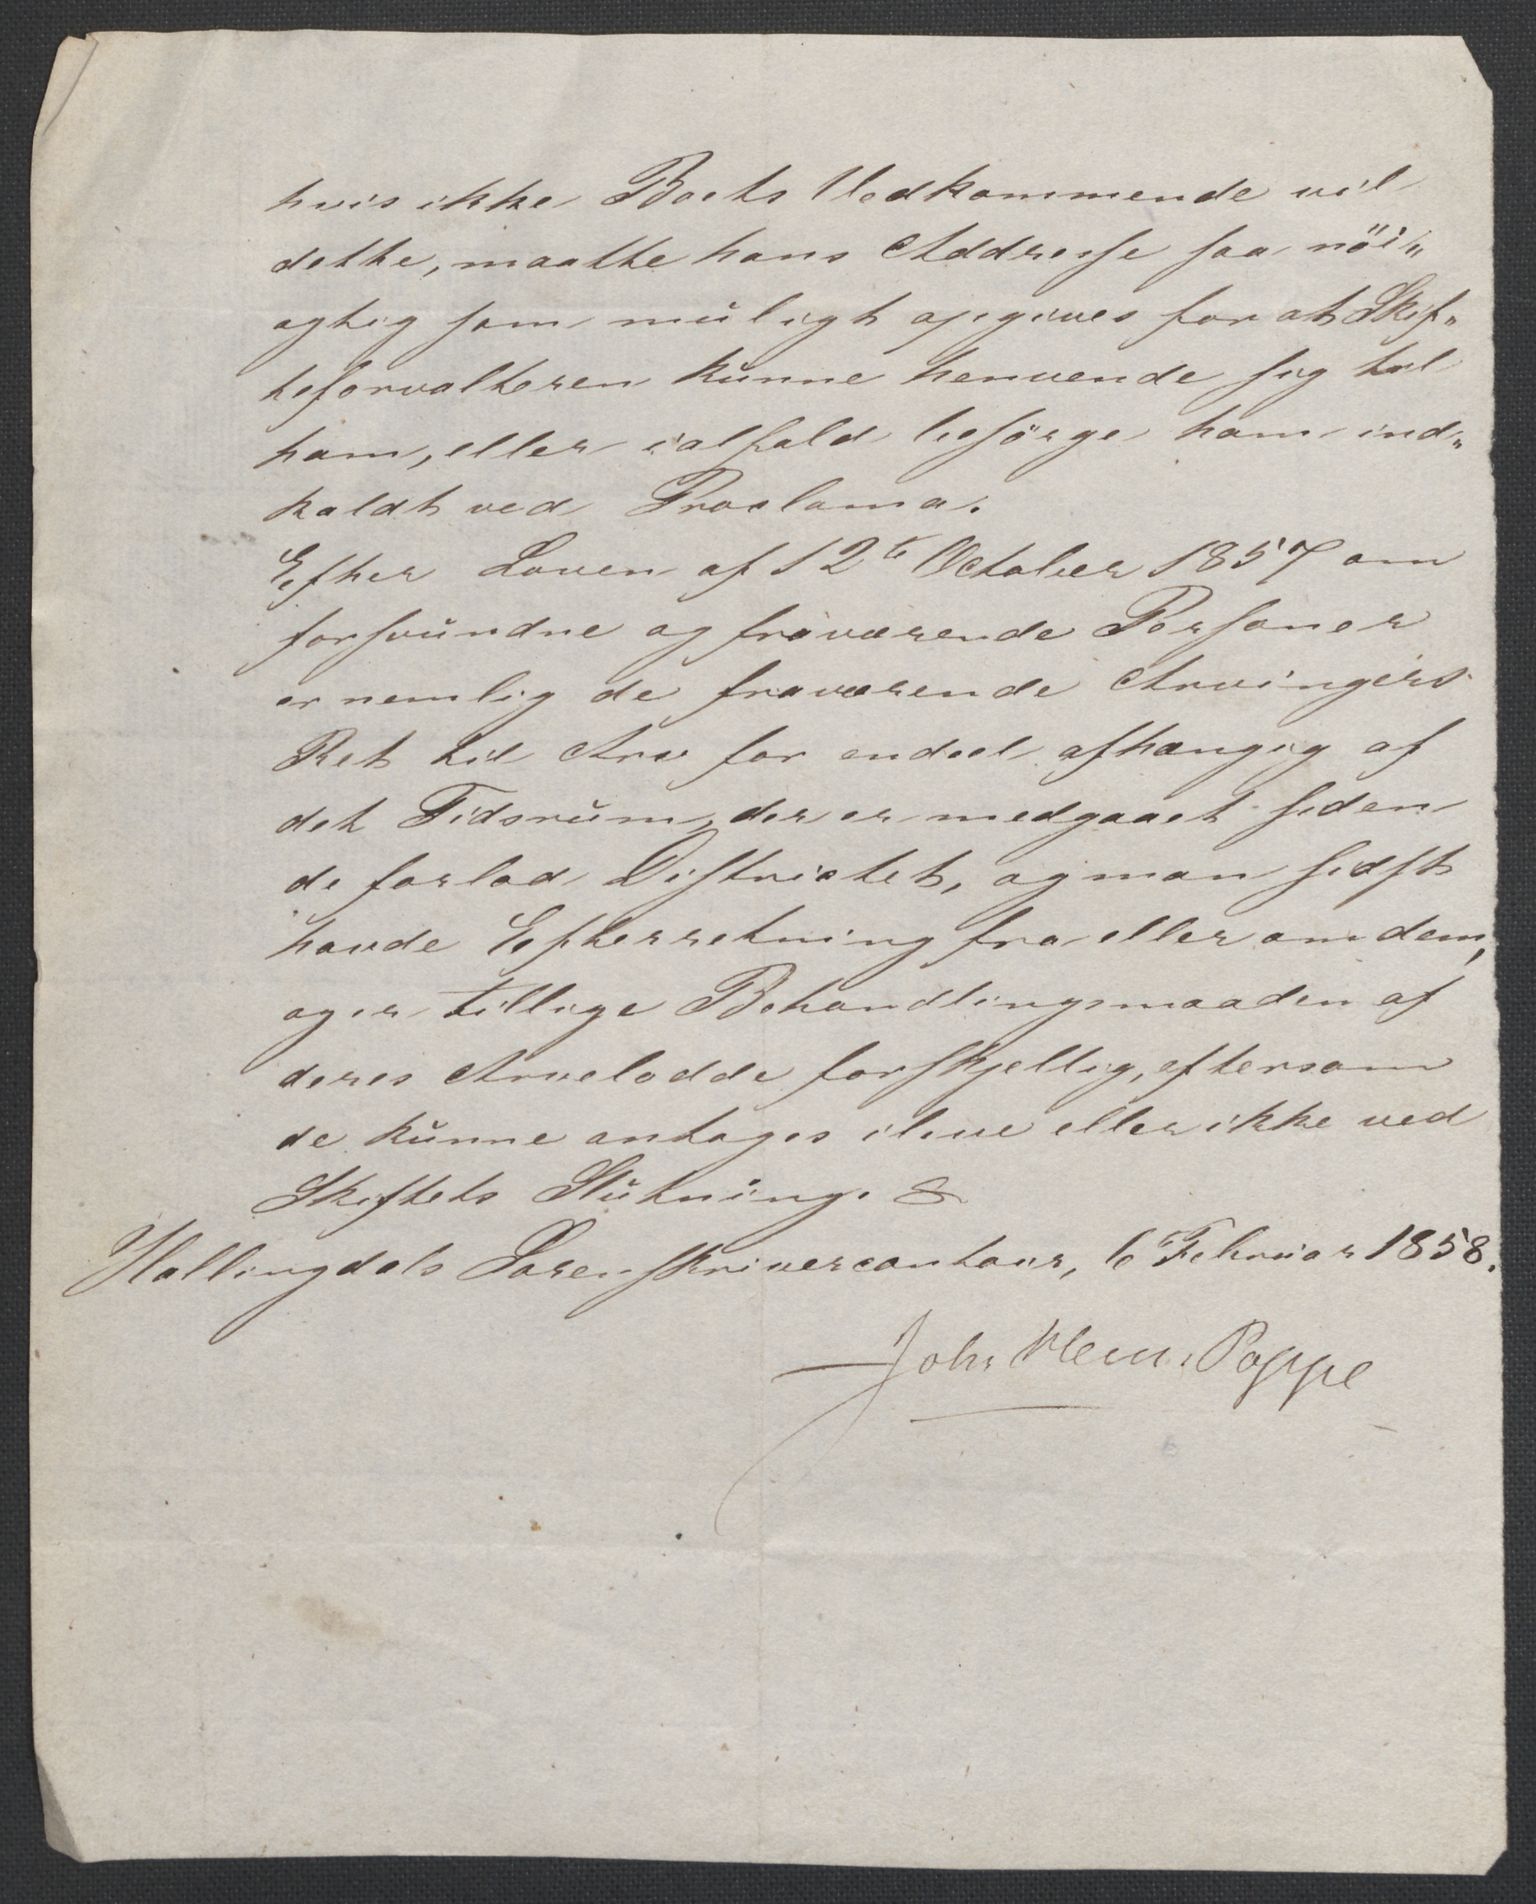 hvis ikke Boets Vedkommende vil
dette, maatte hans Addresse saa nöi„
agtig som muligt opgives for at Skif„
teforvalteren kunne henvende sig til
ham, eller ialfald besörge ham ind„
kaldt ved Proclama.
Efter Loven af 12te October 1857 om
forsvundne og fraværende Personer
er nemlig de fraværende Arvingers
Ret til Arv for endeel afhængig af
det Tidsrum, der er medgaaet siden
de forlod Districtet, og man sidst
havde Efterretning fra eller om dem,
og er tillige Behandlingsmaaden af
deres Arvelodde forskjellig, eftersom
de kunne antages ilive eller ikke ved
Skiftets Slutning.
Hallingdals Sorenskrivercontour, 6 Februar 1858.
Joh. Poppe